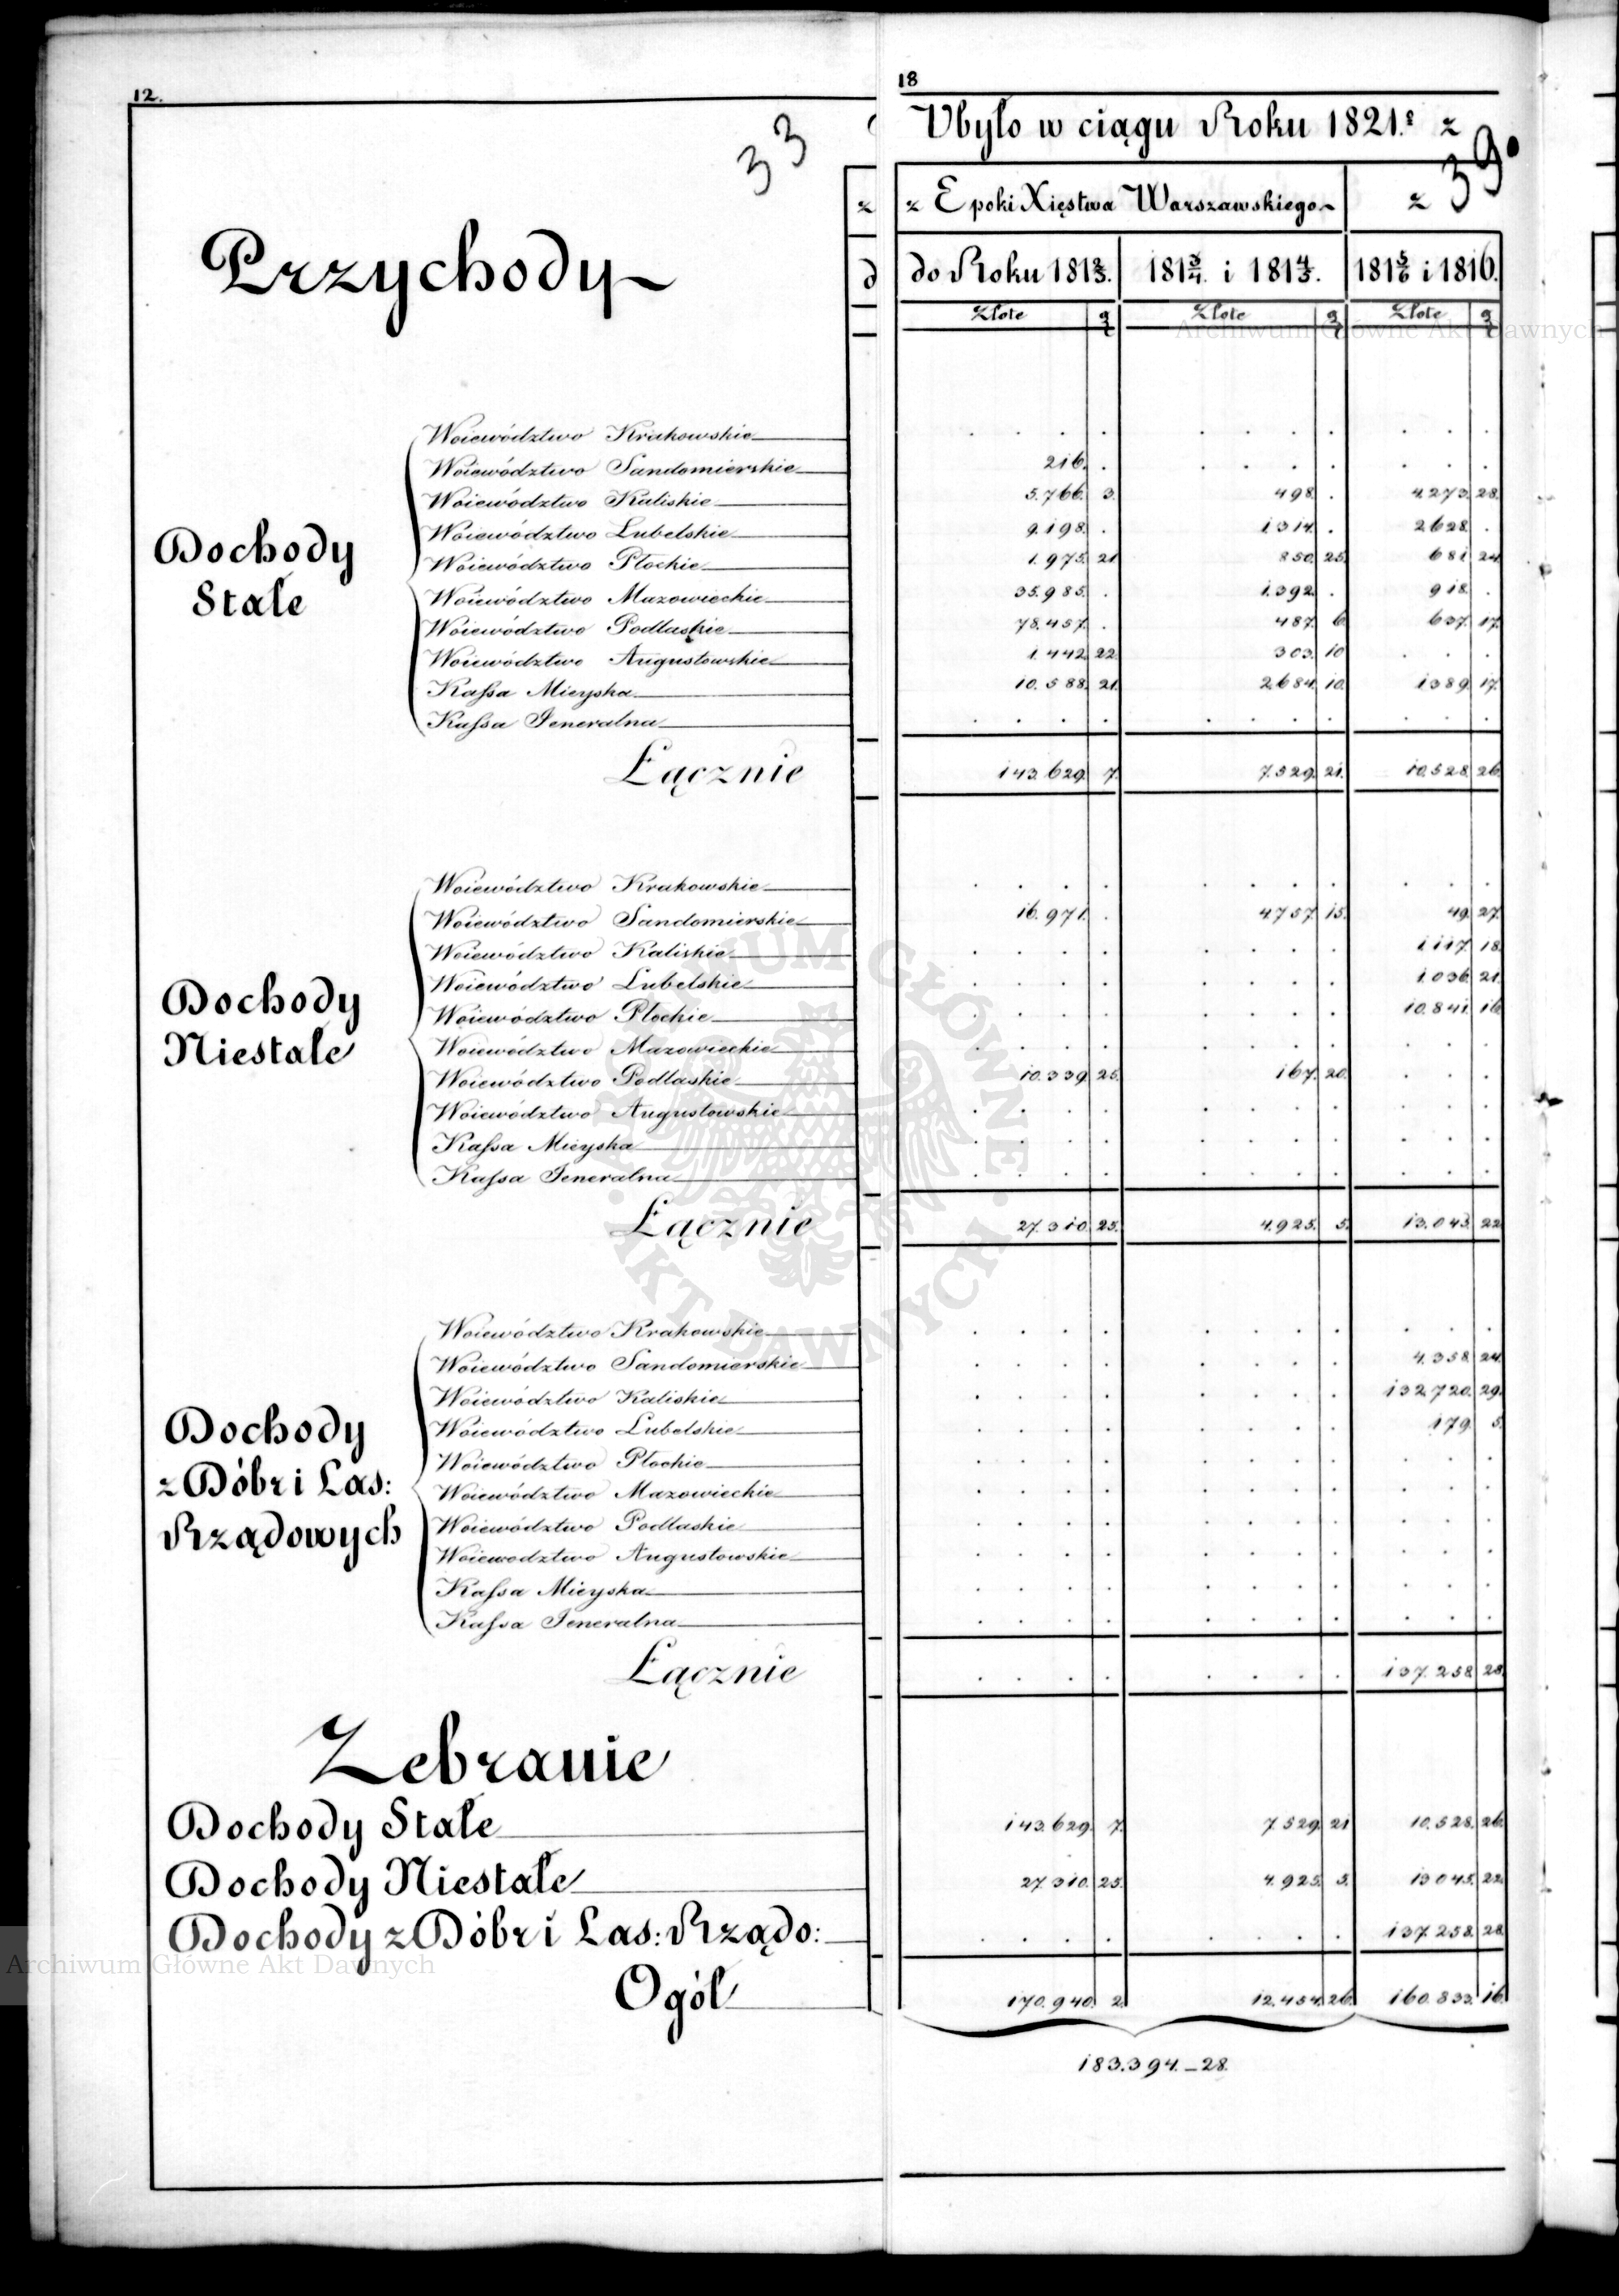 12.
18
33
39.
Ubyło w ciągu Roku 1821.º z
z
z Epoki Xięstwa Warszawskiego
z
Przychody
d
do Roku 181 2/3.
181 3/4. i 181 4/5.
181 5/6 i 1816.
Złote g Złote g Złote g
Archiwum Główne Akt Dawnych
Dochody
Stałe
Woiewództwo Krakowskie . . . . . . . . . . .
Woiewództwo Sandomierskie 216. . . . . . . . . .
Woiewództwo Kaliskie 5.766. 3. 498. . 4.273. 28.
Woiewództwo Lubelskie 9.198. . 1.314. . 2628. .
Woiewództwo Płockie 1.975. 21. 850. 25. 681. 24.
Woiewództwo Mazowieckie 35.985. . 1.392. . 918. .
Woiewództwo Podlaskie 78.457. . 487. 6. 637. 17.
Woiewództwo Augustowskie 1.442. 22. 303. 10. . . .
Kaſsa Mieyska 10.588. 21. 2.684. 10. 1389. 17.
Kaſsa Jeneralna . . . . . . . . . . .
Łącznie 143.629. 7. 7.529. 21. 10.528. 26.
Dochody
Niestałe
Woiewództwo Krakowskie . . . . . . . . . . .
Woiewództwo Sandomierskie 16.971. . 4.757. 15. 49. 27.
Woiewództwo Kaliskie . . . . . . . . 1.117. 18.
Woiewództwo Lubelskie . . . . . . . . 1.036. 21.
Woiewództwo Płockie . . . . . . . . 10.841. 16.
Woiewództwo Mazowieckie . . . . . . . . . . .
Woiewództwo Podlaskie 10.339. 25. 167. 20. . . .
Woiewództwo Augustowskie . . . . . . . . . . .
Kaſsa Mieyska . . . . . . . . . . .
Kaſsa Jeneralna . . . . . . . . . . .
Łącznie 27.310. 25. 4.925. 5. 13.045. 22.
ARCHIWUM GŁÓWNE · AKT DAWNYCH ·
Dochody
z Dóbr i Las:
Rządowych
Woiewództwo Krakowskie . . . . . . . . . . .
Woiewództwo Sandomierskie . . . . . . . . 4.358. 24.
Woiewództwo Kaliskie . . . . . . . . 132.720. 29.
Woiewództwo Lubelskie . . . . . . . . 179. 5.
Woiewództwo Płockie . . . . . . . . . . .
Woiewództwo Mazowieckie . . . . . . . . . . .
Woiewództwo Podlaskie . . . . . . . . . . .
Woiewodztwo Augustowskie . . . . . . . . . . .
Kaſsa Mieyska . . . . . . . . . . .
Kaſsa Jeneralna . . . . . . . . . . .
Łącznie . . . . . . . . 137.258. 28.
Zebranie
Dochody Stałe 143.629. 7. 7.529. 21 10.528. 26.
Dochody Niestałe 27.310. 25. 4.925. 5. 13045. 22.
Dochody z Dóbr i Las: Rządo: . . . . . . . . 137.258. 28.
Archiwum Główne Akt Dawnych
Ogół 170.940. 2. 12.454. 26. 160.833. 16.
183.394.–28.